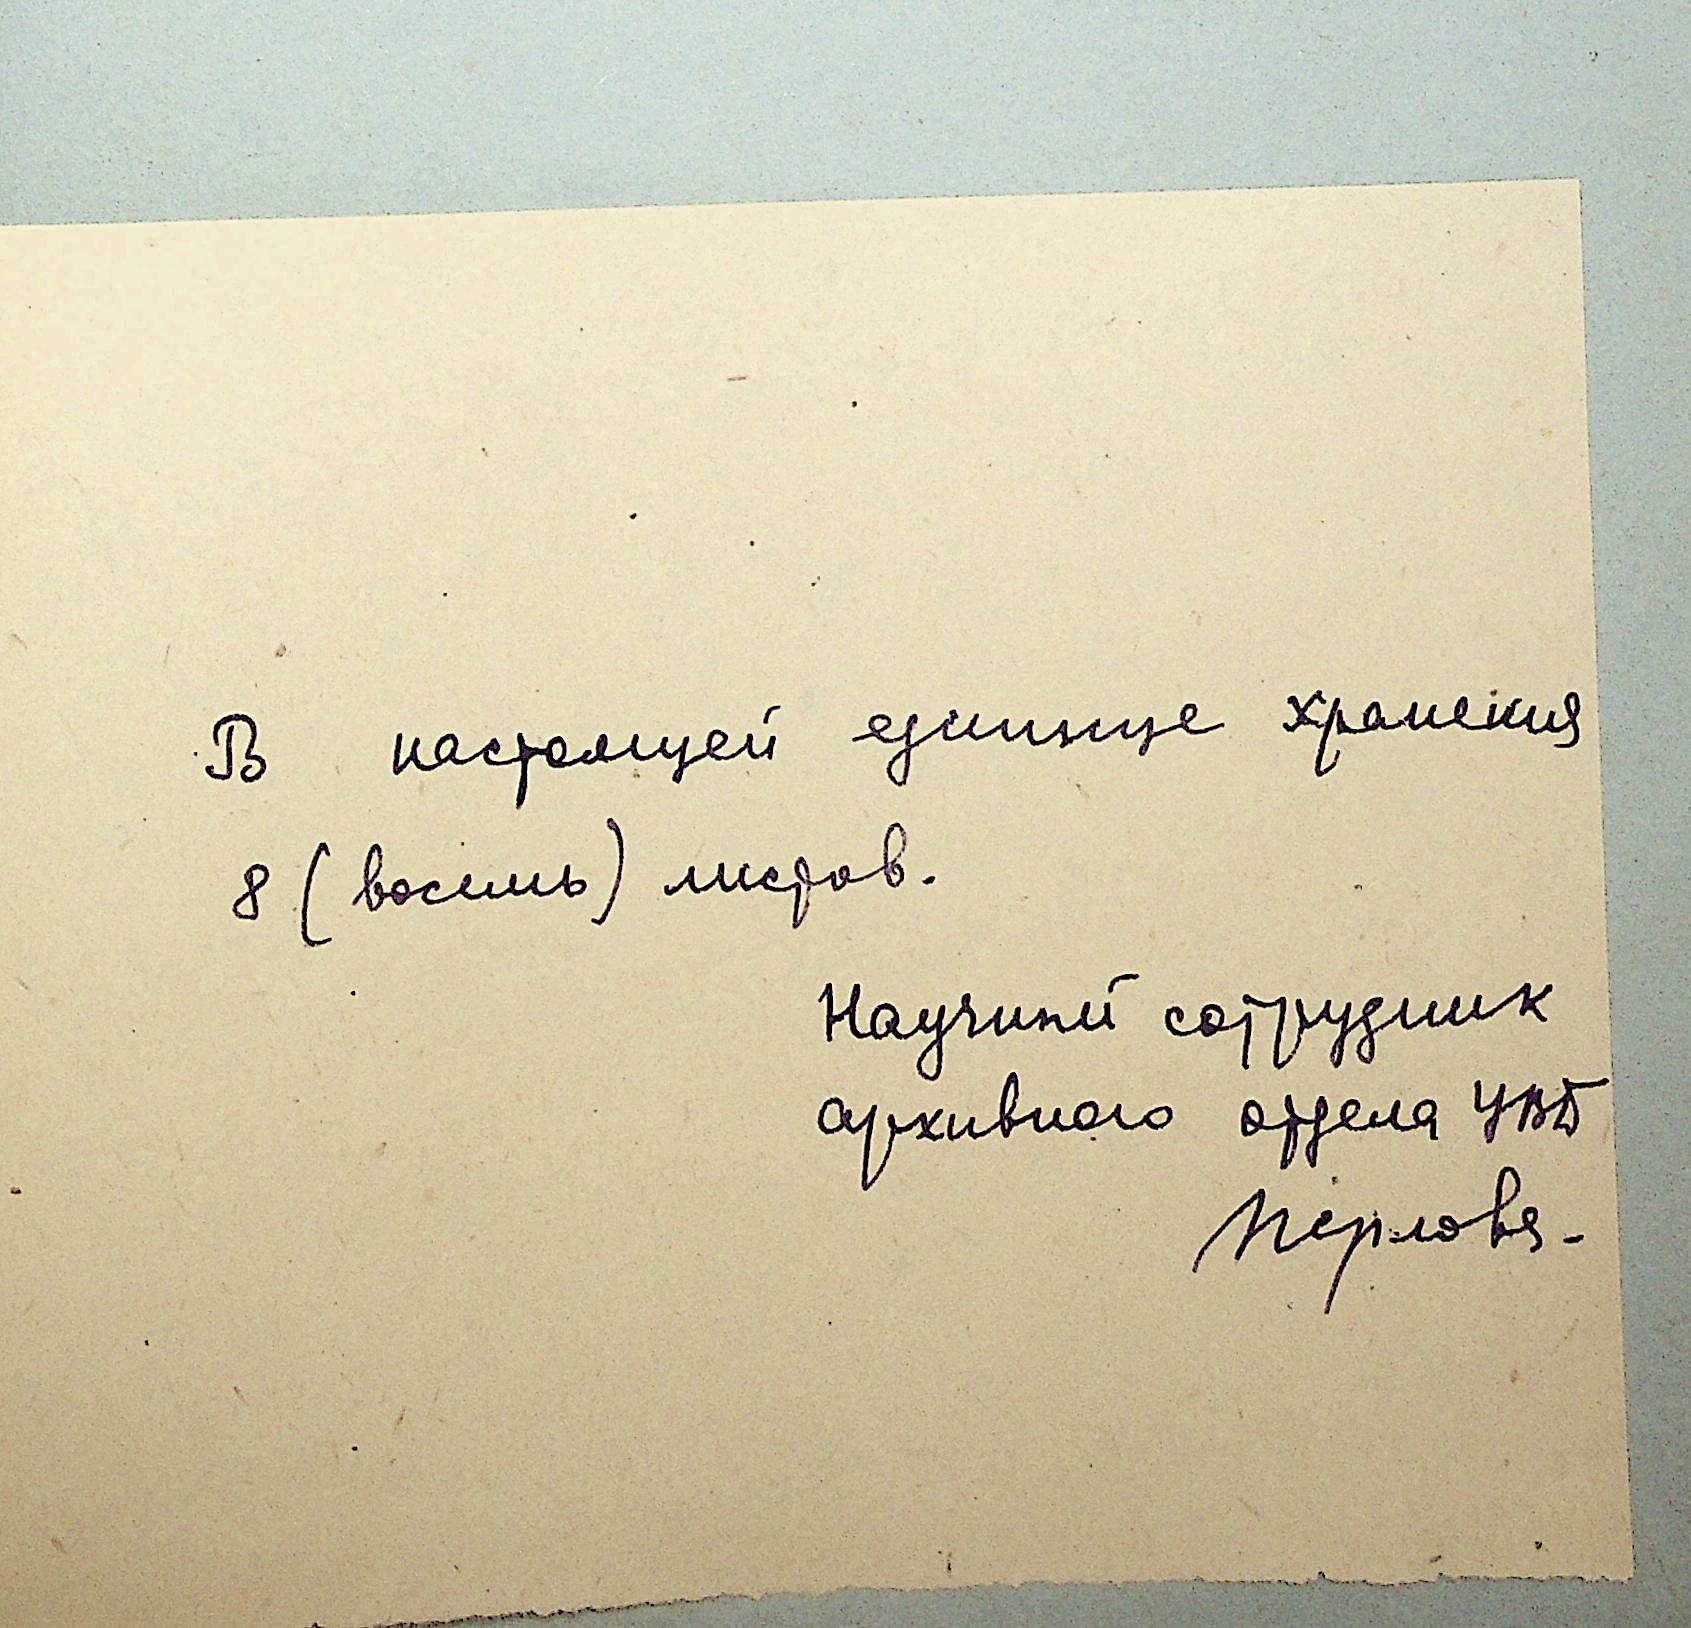 В настоящей единице хранения
8 (восемь) листов.
Научный сотрудник
архивного отдела УВД
Перлова.